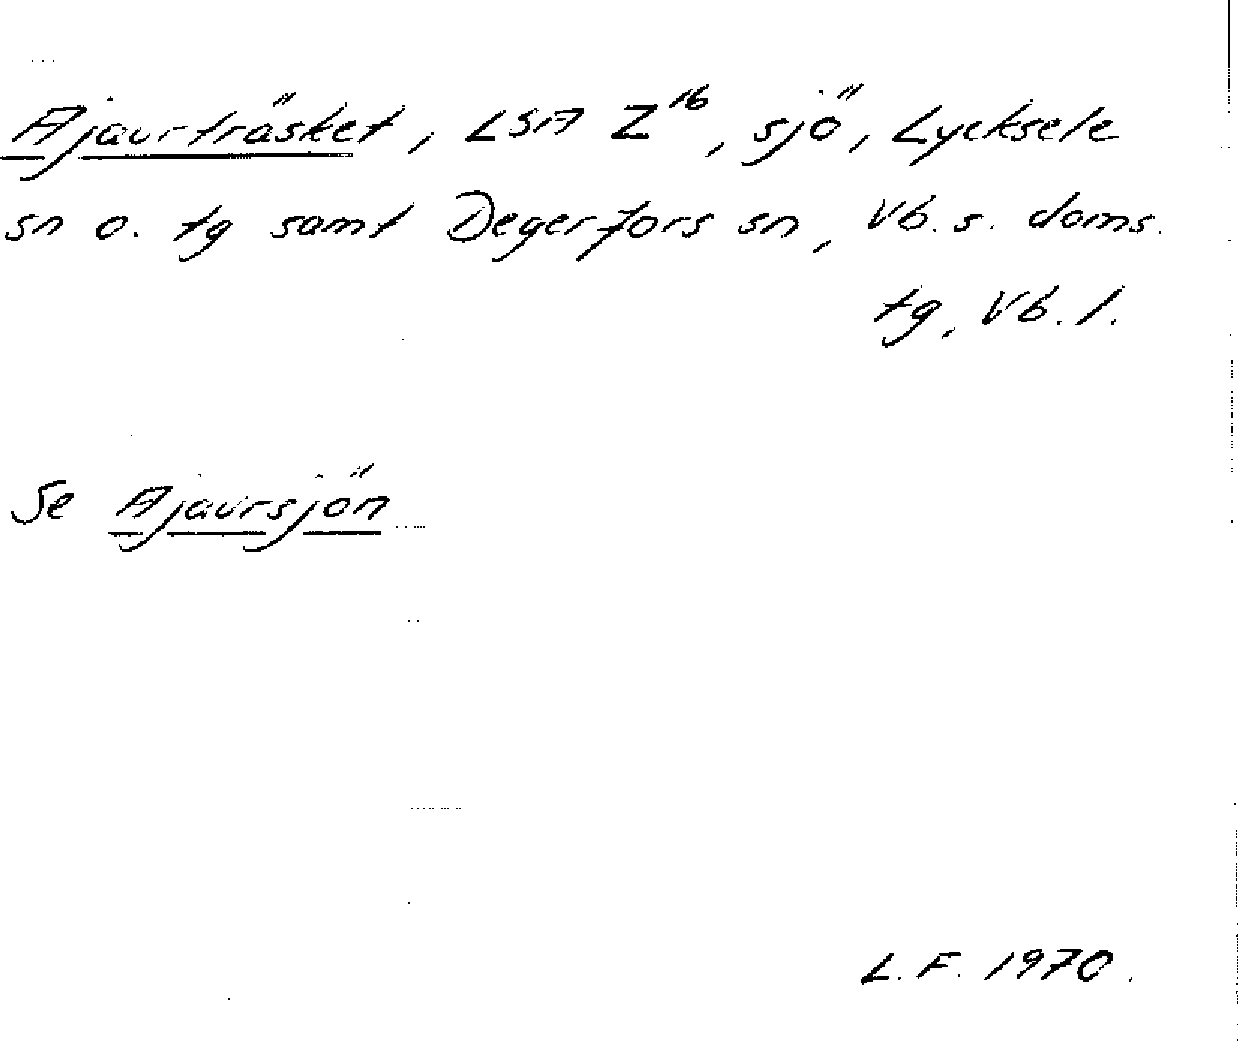 Ajaurträsket, LSA Z16, sjö, Lycksele
sn o. tg samt Degerfors sn, Vb. s. doms.
tg, Vb. l.
Se Ajaursjön
L. F. 1970.